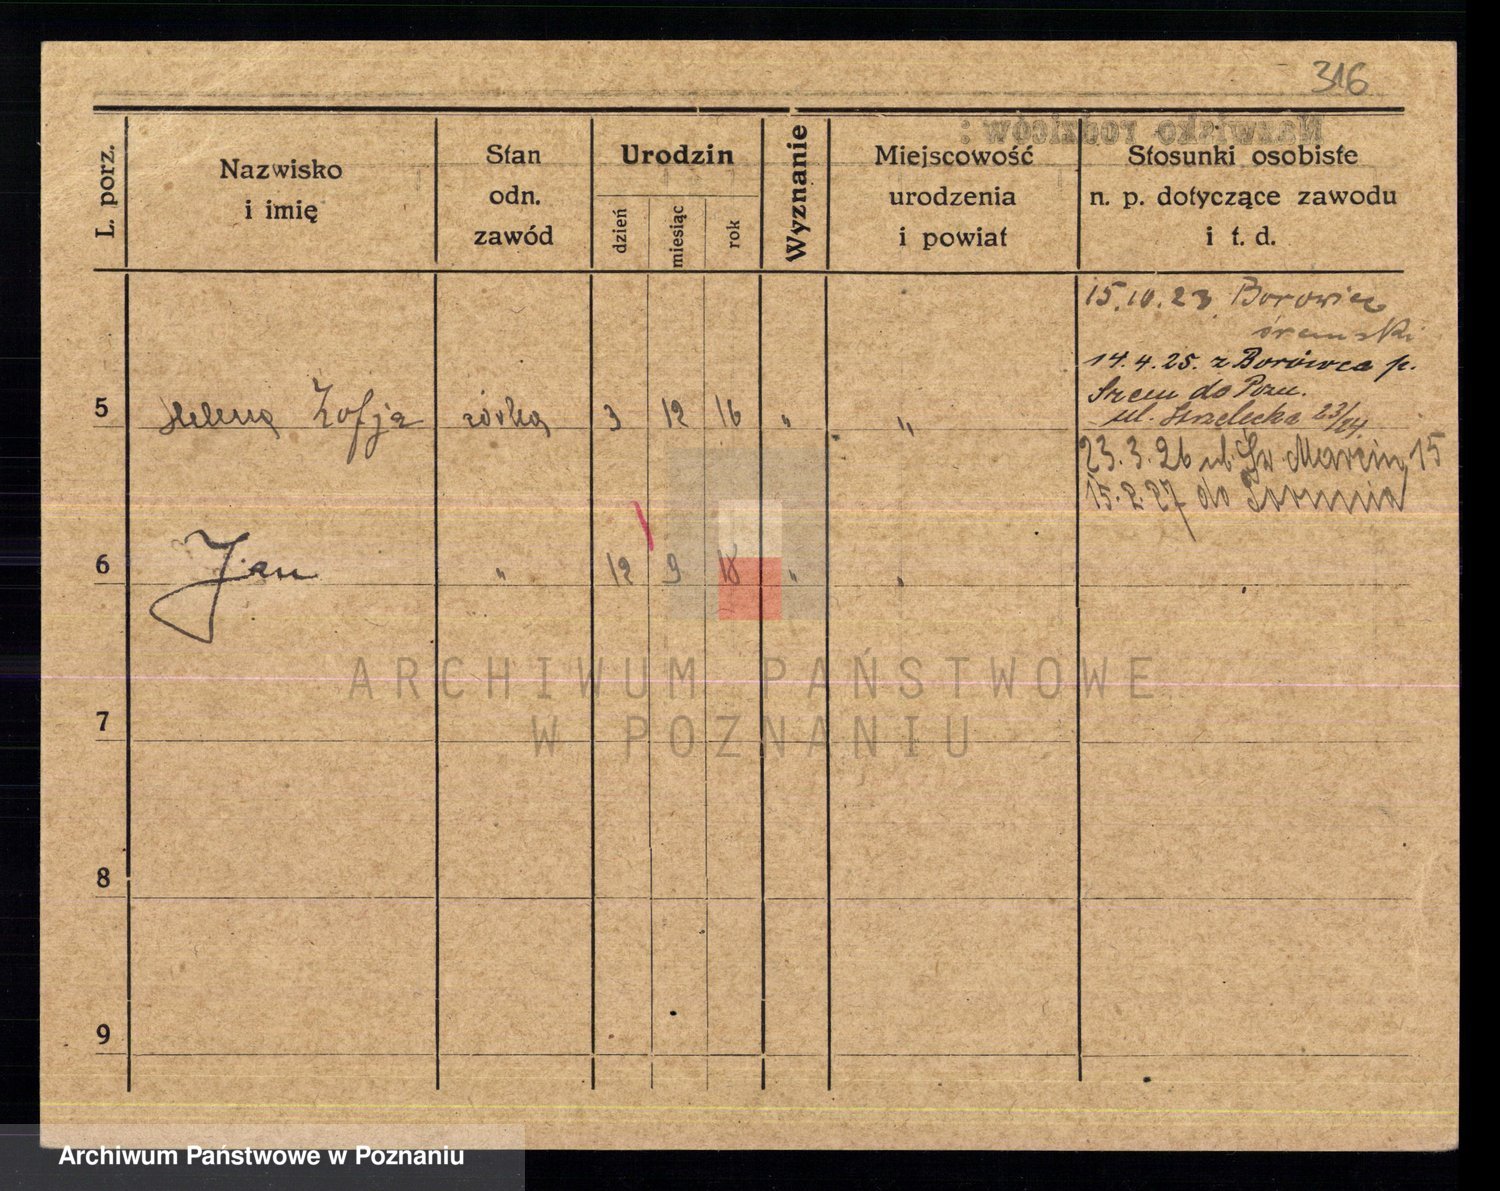 316
Nazwisko rodziców:
L. porz.
Nazwisko
i imię
Stan
odn.
zawód
Urodzin
dzień
miesiąc
rok
Wyznanie
Miejscowość
urodzenia
i powiat
Stosunki osobiste
n. p. dotyczące zawodu
i t. d.
15.10.23 Borowiec
śremski
14.4.25. z Borówca p.
Śrem do Pozn.
ul. Strzelecka 23/24
5 Helena Zofja córka 3 12 16 " "
23.3.26 ul. Św Marcin 15
15.2.27 do Torunia
6 Jan " 12 9 18 " "
ARCHIWUM PAŃSTWOWE
W POZNANIU
7
8
9
Archiwum Państwowe w Poznaniu